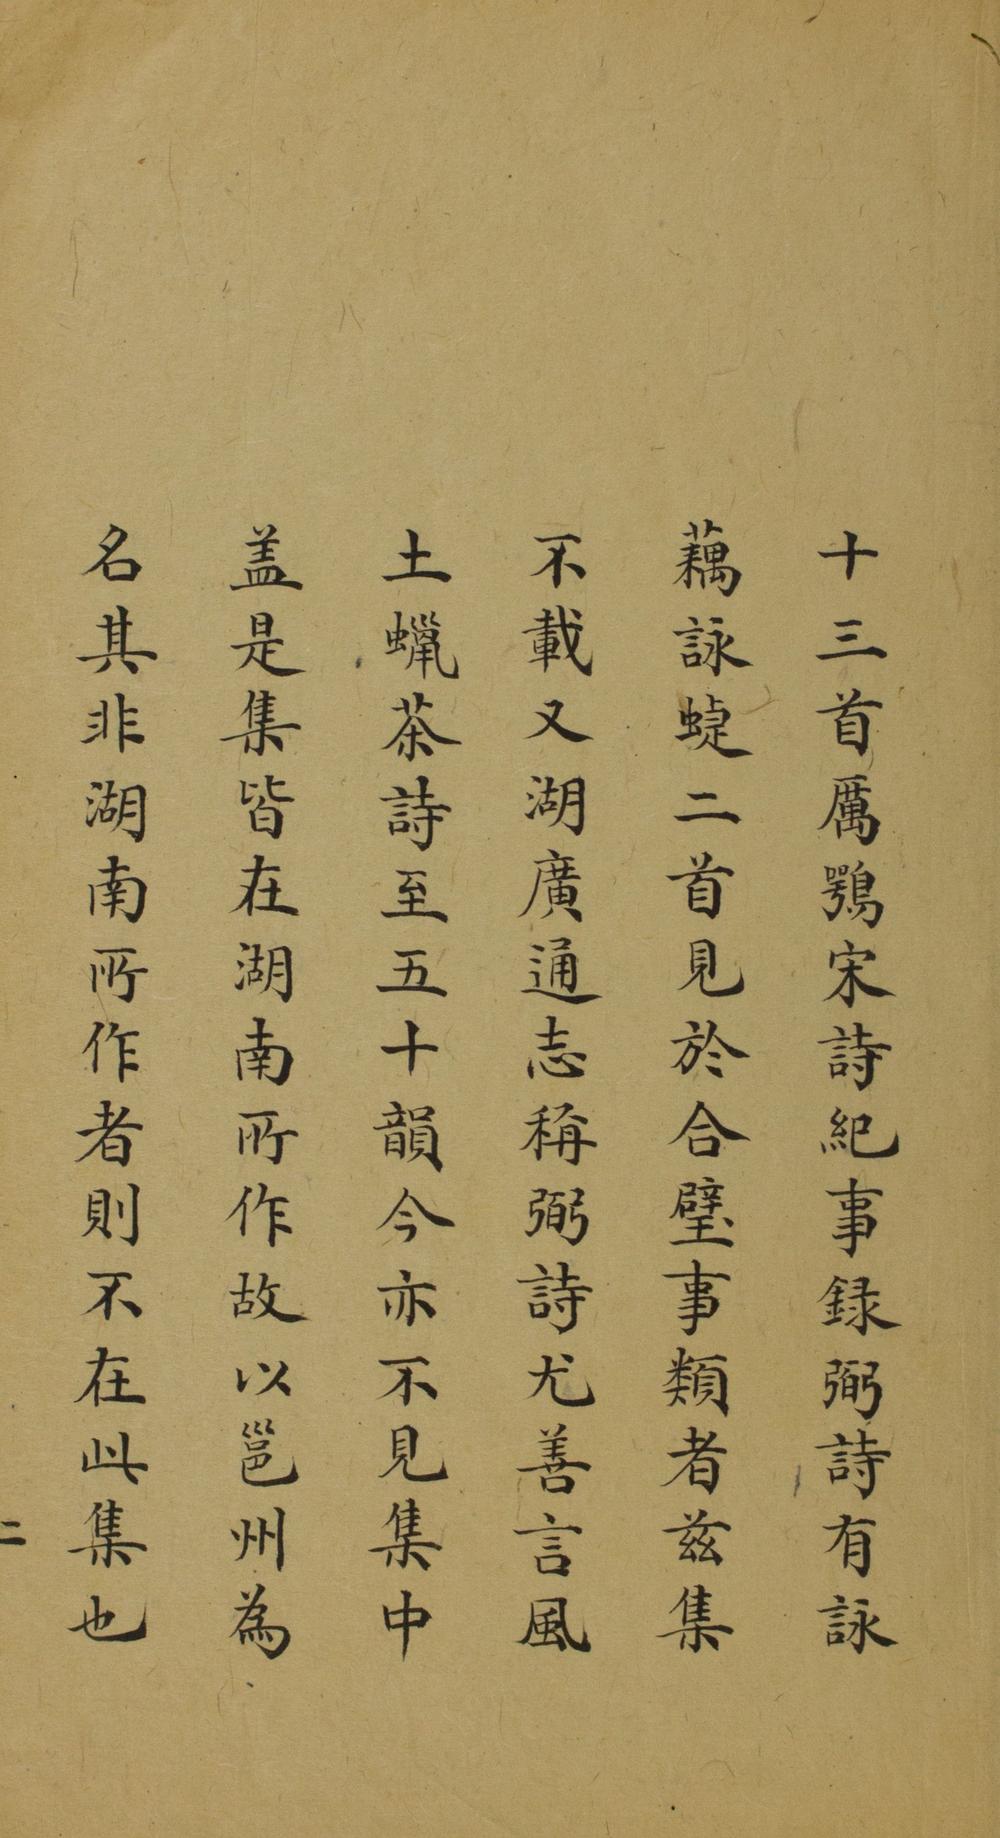 十三首厲鶚宋詩紀事録弼詩有詠
藕詠蜨二首見於合璧事類者兹集
不載又湖廣通志稱弼詩尤善言風
土蠟茶詩至五十韻今亦不見集中
盖是集皆在湖南所作故以邕州為
名其非湖南所作者則不在此集也
二